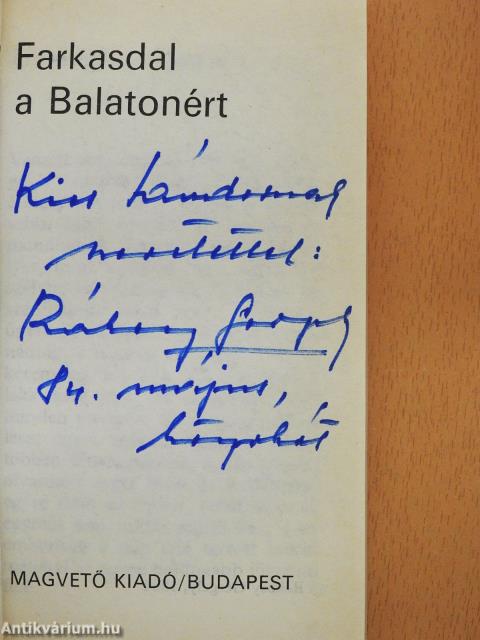 Farkasdal
a Balatonért
Kiss Sándornak
szeretettel:
Rátonyi József
84. május,
könyvhét
MAGVETŐ KIADÓ/BUDAPEST
Antikvárium.hu